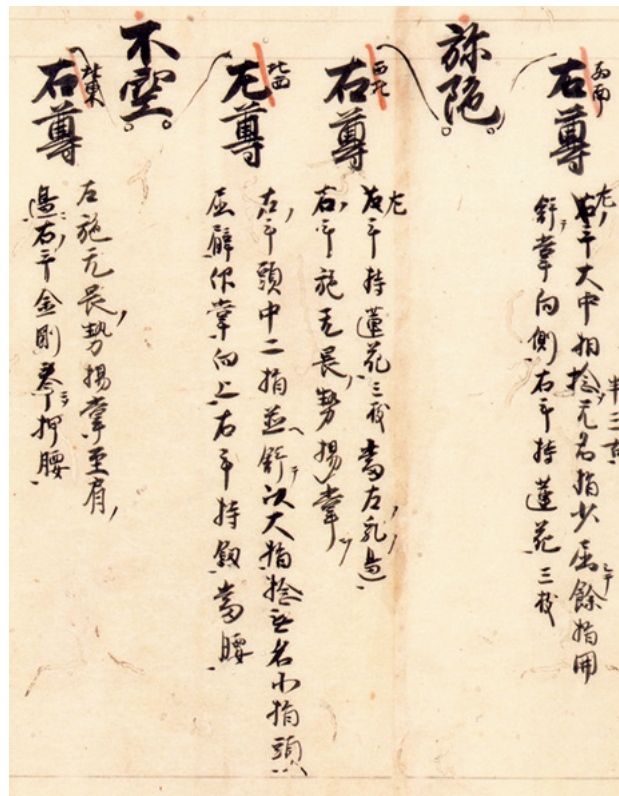 右尊
西南
左手大中相捻无名指少屈餘指開
舒掌向側右手持蓮花三枝
弥陁
右尊
西北
左手持蓮花三枝當左乳邊
右手施无畏勢揚掌
左尊
北西
左手頭中二指並舒以大指捻無名小指頭
屈臂仰掌向上右手持劔當腰
不空
右尊
北東
左施无畏勢揚掌至肩
邊右手金剛拳押腰